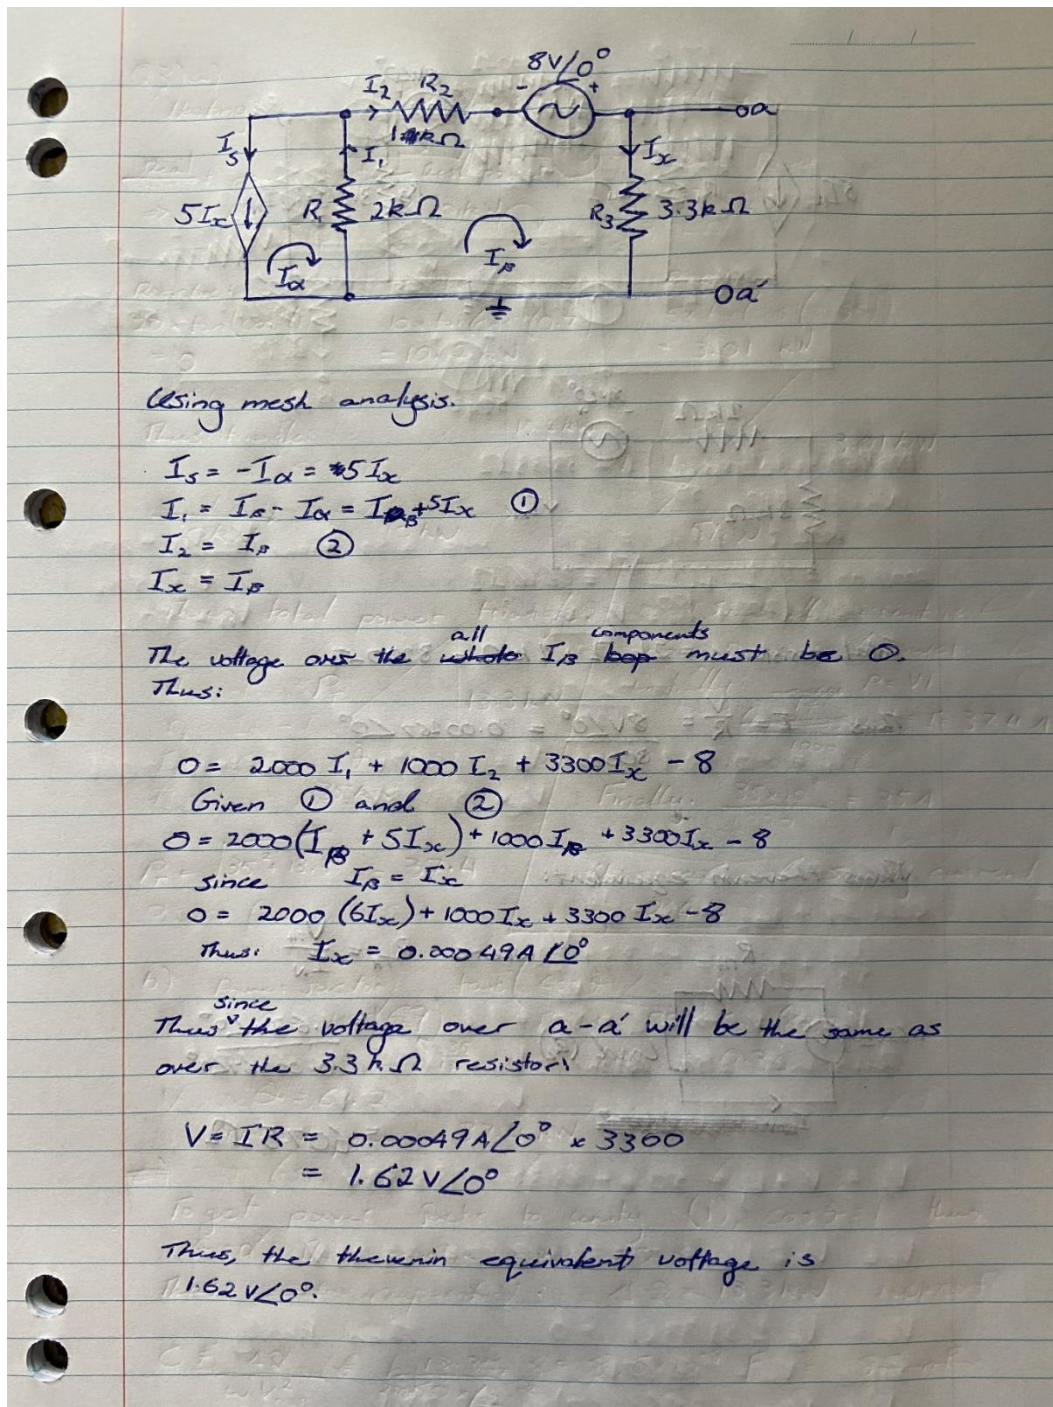 8V∠0°
I₂ R₂ - +
1kΩ
a
I₅ I₁ Iₓ
5Iₓ R₁ 2kΩ R₃ 3.3kΩ
Iα Iᵦ
a'
Using mesh analysis.
I₅ = -Iα = 5Iₓ
I₁ = Iᵦ - Iα = Iᵦ + 5Iₓ ①
I₂ = Iᵦ ②
Iₓ = Iᵦ
all components
The voltage over the whole Iᵦ loop must be 0.
Thus:
0 = 2000 I₁ + 1000 I₂ + 3300 Iₓ - 8
Given ① and ②
0 = 2000(Iᵦ + 5Iₓ) + 1000 Iᵦ + 3300Iₓ - 8
since Iᵦ = Iₓ
0 = 2000 (6Iₓ) + 1000 Iₓ + 3300 Iₓ - 8
Thus: Iₓ = 0.00049A∠0°
since
Thus the voltage over a-a' will be the same as
over the 3.3kΩ resistor:
V = IR = 0.00049A∠0° × 3300
= 1.62V∠0°
Thus, the thevenin equivalent voltage is
1.62V∠0°.